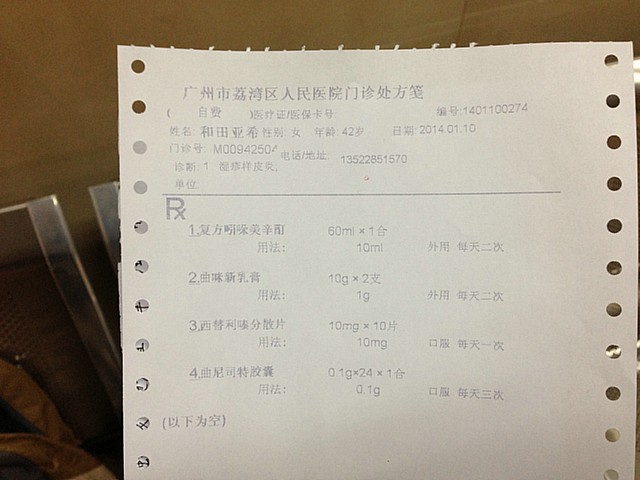 广州市荔湾区人民医院门诊处方笺
( 自费 )医疗证/医保卡号: 编号:1401100274
姓名: 和田亚希 性别: 女 年龄: 42岁 日期: 2014.01.10
门诊号: M00942504 电话/地址: 13522851570
诊断: 1. 湿疹样皮炎;
单位:
Rx
1.复方吲哚美辛酊 60ml × 1合
用法: 10ml 外用 每天二次
2.曲咪新乳膏 10g × 2支
用法: 1g 外用 每天二次
3.西替利嗪分散片 10mg × 10片
用法: 10mg 口服 每天一次
4.曲尼司特胶囊 0.1g×24 × 1合
用法: 0.1g 口服 每天三次
(以下为空)